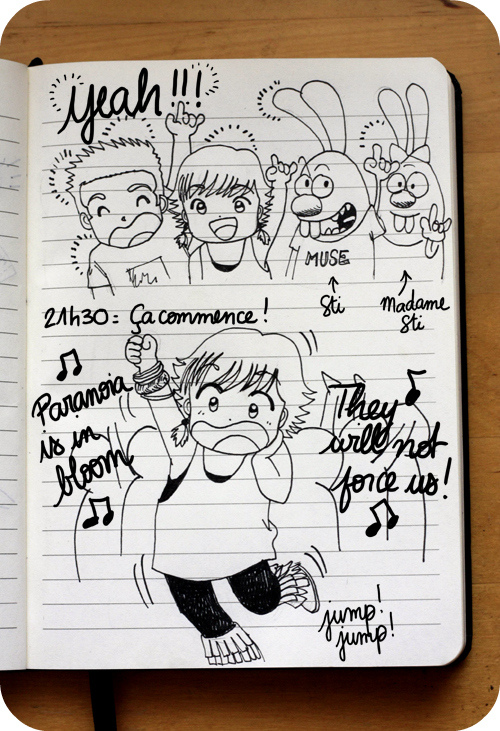 Yeah!!!
MUSE
Sti
Madame
Sti
21h30: Ça commence!
Paranoia
is in
bloom
They
will not
force us!
jump!
jump!